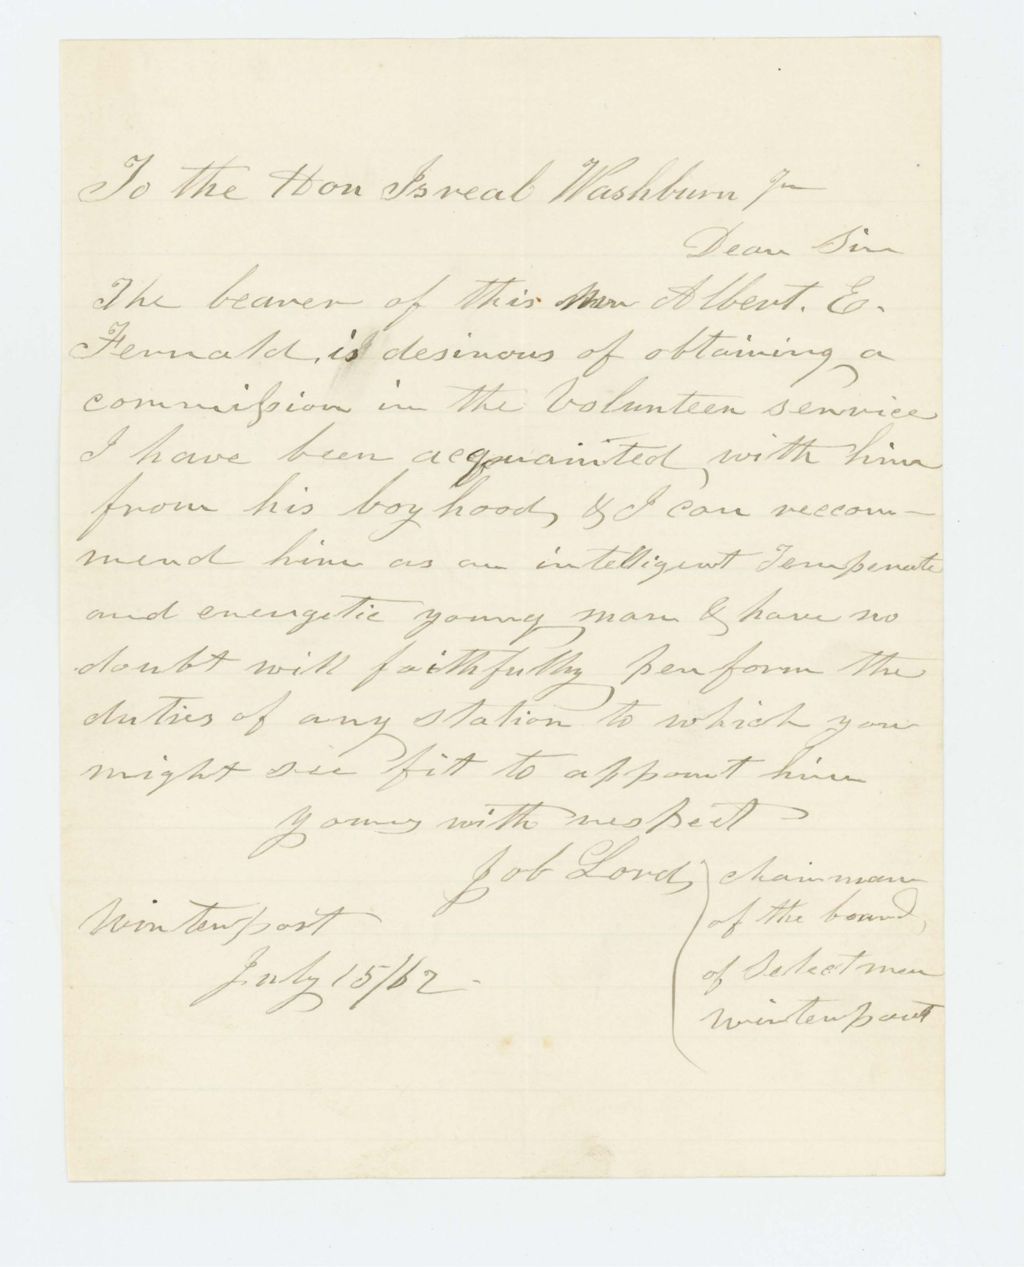 To the Hon Isreal Washburn Jr
Dear Sir
The bearer of this Mr Albert. E.
Fernald, is desirous of obtaining a
commission in the Volunteer service
I have been acquainted with him
from his boyhood, & I can reccom-
mend him as an intelligent Temperate
and energetic young man & have no
doubt will faithfully perform the
duties of any station to which you
might see fit to appoint him
yours with respect
Job Lord, chairman
of the board,
of Selectmen
Winterport
Winterport
July 15/62